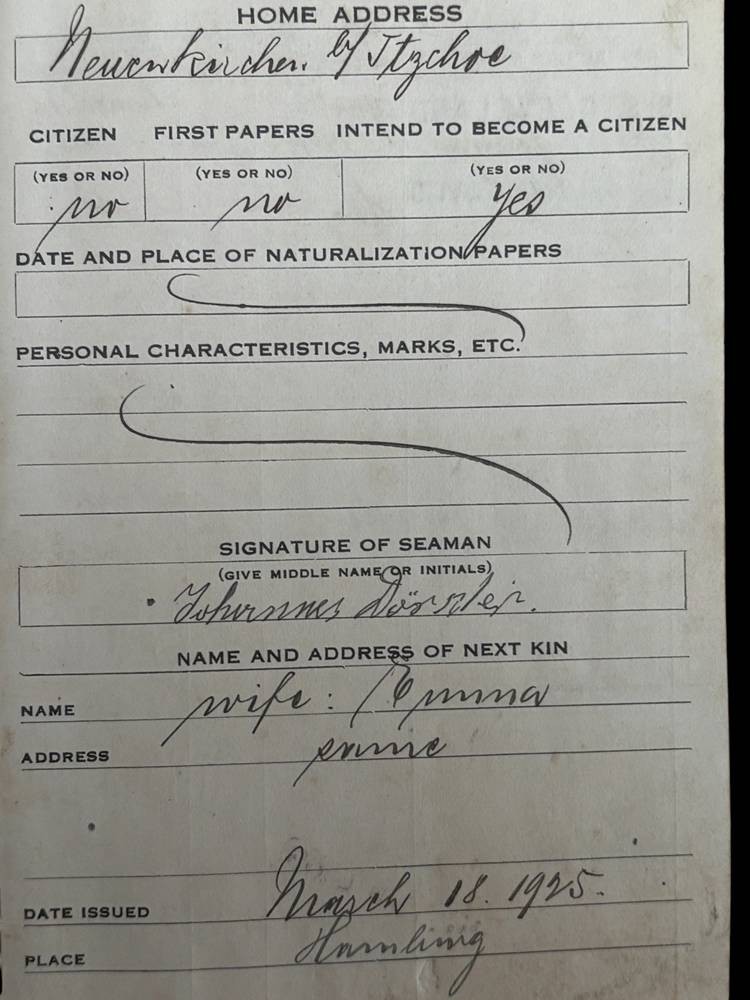 HOME ADDRESS
Neuenkirchen. b/ Itzehoe
CITIZEN FIRST PAPERS INTEND TO BECOME A CITIZEN
(YES OR NO) (YES OR NO) (YES OR NO)
no no yes
DATE AND PLACE OF NATURALIZATION PAPERS
PERSONAL CHARACTERISTICS, MARKS, ETC.
SIGNATURE OF SEAMAN
(GIVE MIDDLE NAME OR INITIALS)
Johannes
NAME AND ADDRESS OF NEXT KIN
NAME wife: Emma
ADDRESS same
DATE ISSUED March 18. 1925.
PLACE Hamburg